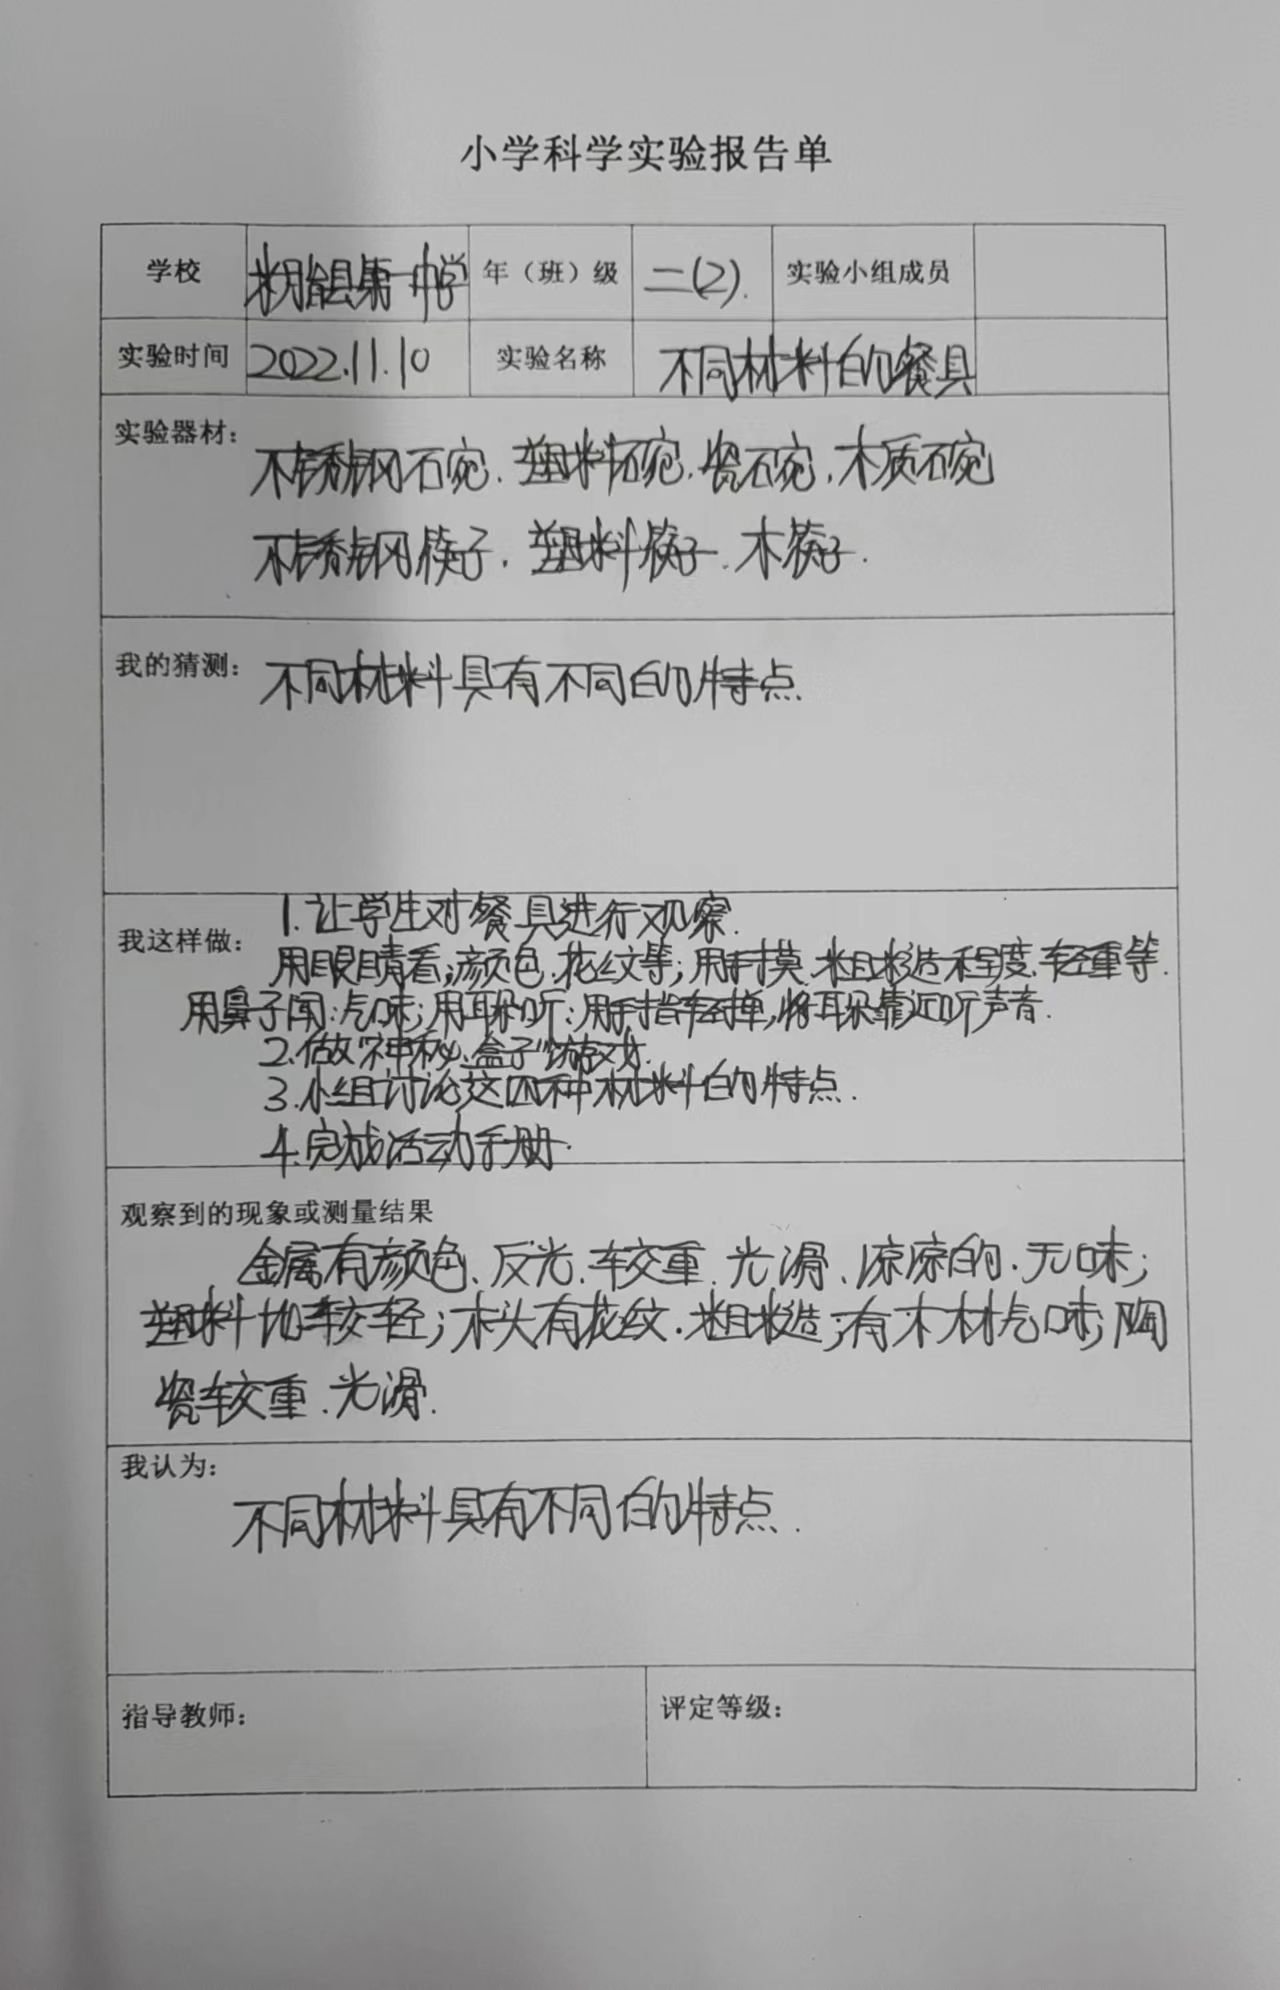 小学科学实验报告单
学校 县第一中学 年（班）级 二(2). 实验小组成员
实验时间 2022.11.10 实验名称 不同材料的餐具
实验器材： 不锈钢碗.塑料碗.瓷碗.木质碗
不锈钢筷子.塑料筷子.木筷子.
我的猜测： 不同材料具有不同的特点.
1.让学生对餐具进行观察.
我这样做： 用眼睛看:颜色.花纹等;用手摸.粗糙程度.轻重等.
用鼻子闻:气味;用耳朵听:用手指轻弹,将耳朵靠近听声音.
2.做“神秘盒子”游戏.
3.小组讨论这四种材料的特点.
4.完成活动手册.
观察到的现象或测量结果
金属有颜色、反光.较重.光滑、凉凉的.无味;
塑料比较轻;木头有花纹.粗糙;有木材气味;陶
瓷较重.光滑.
我认为：
不同材料具有不同的特点.
指导教师： 评定等级：